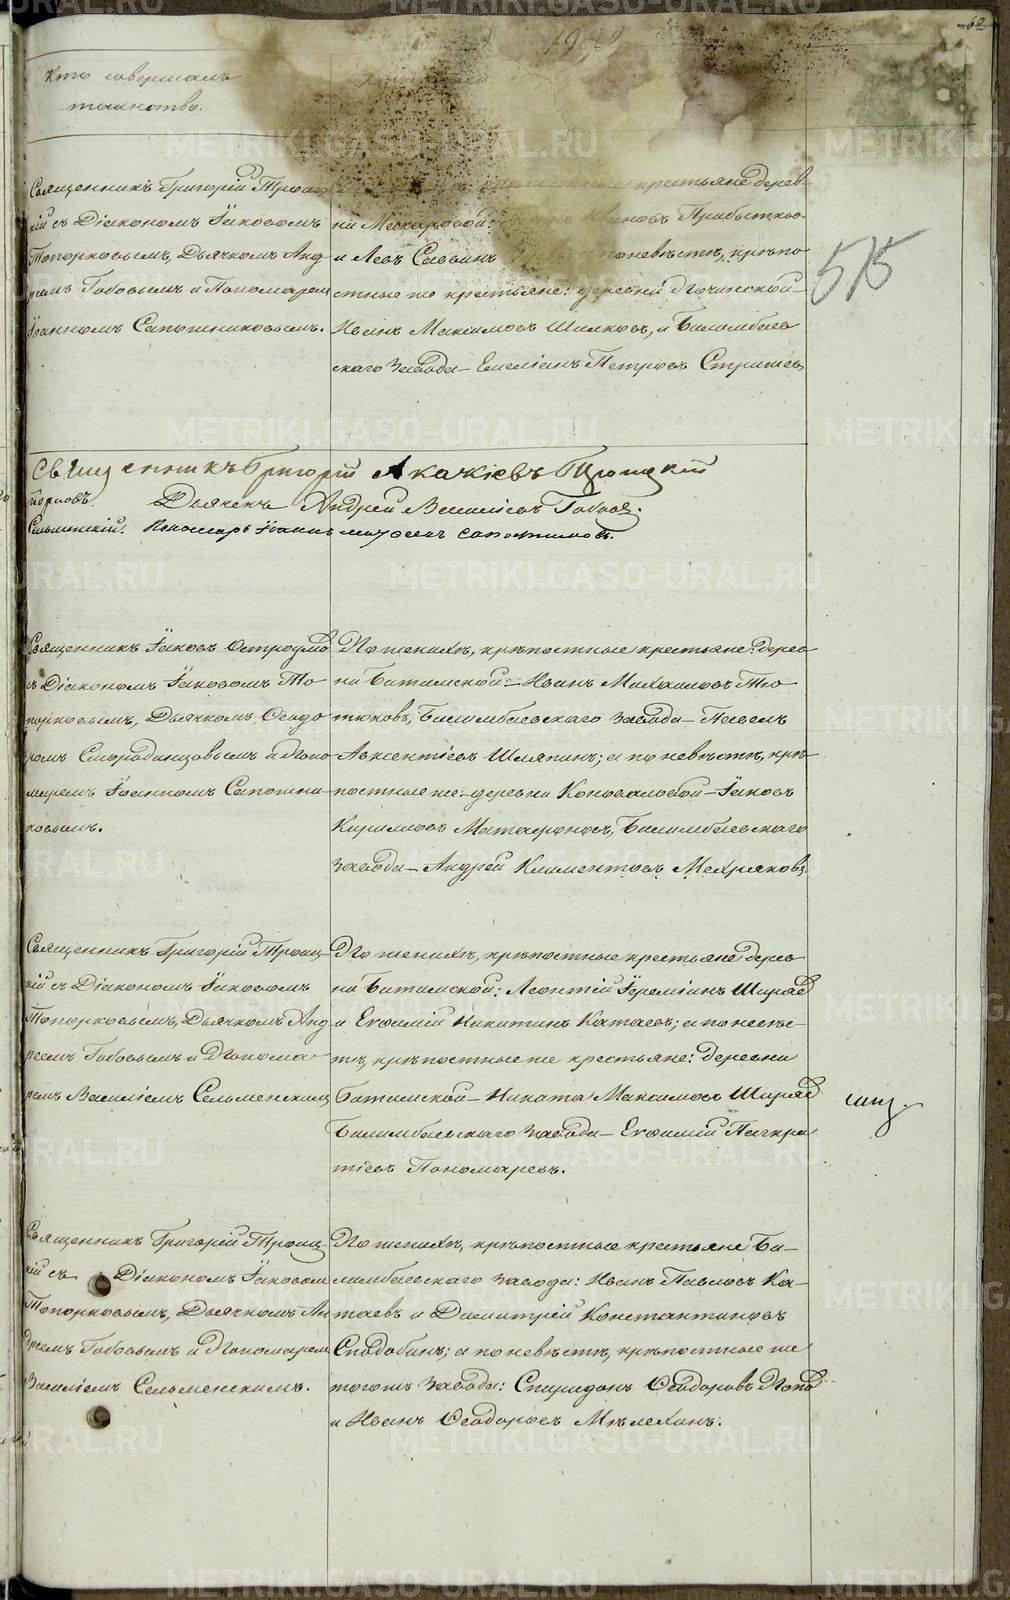 62
Кто совершалъ
таинство.
Священникъ Григорій Троиц
кій съ Діакономъ Іаковомъ
Топорковымъ, Дьячкомъ Анд
реемъ Гобовымъ и Пономаремъ
Іоанномъ Сапожниковымъ.
крестьяне дерев
ни Ивановъ
и Левъ Саввинъ по невѣстѣ, крѣпо
стные же крестьяне: деревни
Иванъ Максимовъ и Билимбаев
скаго завода – Емеліанъ Петровъ
515
Священникъ Григорій Акакіевъ Троицкій
Дьячекъ Андрей Василіевъ Гобовъ.
Сельменскій. Пономарь Іоаннъ Сапожниковъ.
Священникъ Іаковъ Остроумо
съ Діакономъ Іаковомъ То
порковымъ, Дьячкомъ Ѳеодо
ромъ Смородинцовымъ и Поно
маремъ Іоанномъ Сапожни
ковымъ.
По женихѣ, крѣпостные крестьяне: дерев
ни Битимской – Иванъ Михаиловъ Тю
тюковъ, Билимбаевскаго завода – Павелъ
Авксентіевъ Шляпинъ; а по невѣстѣ, крѣ
постные же: деревни Коноваловой – Іаковъ
Кириловъ Матафоновъ, Билимбаевскаго
завода – Андрей Климентовъ Мехряковъ.
Священникъ Григорій Троиц
кій съ Діакономъ Іаковомъ
Топорковымъ, Дьячкомъ Анд
реемъ Гобовымъ и Понома
ремъ Василіемъ Сельменским
По женихѣ, крѣпостные крестьяне дерев
ни Битимской: Леонтій Іереміинъ
и Евѳимій Никитинъ Катаевъ; а по невѣс
тѣ, крѣпостные же крестьяне: деревни
Битимской – Никита Максимовъ
Билимбаевскаго завода – Евѳимій Панкра
тіевъ Пономаревъ.
Священникъ Григорій Троиц
кій съ Діакономъ Іаковом
Топорковымъ, Дьячкомъ Ан
дреемъ Гобовымъ и Пономаремъ
Василіемъ Сельменскимъ.
По женихѣ, крѣпостные крестьяне Би
лимбаевскаго завода: Иванъ Павловъ Ка
таевъ и Димитрій Константиновъ
Сподобинъ; а по невѣстѣ, крѣпостные же
тогожъ завода: Спиридонъ Ѳеодоровъ Попов
и Иванъ Ѳеодоровъ Мѣлехинъ.
METRIKI.GASO-URAL.RU